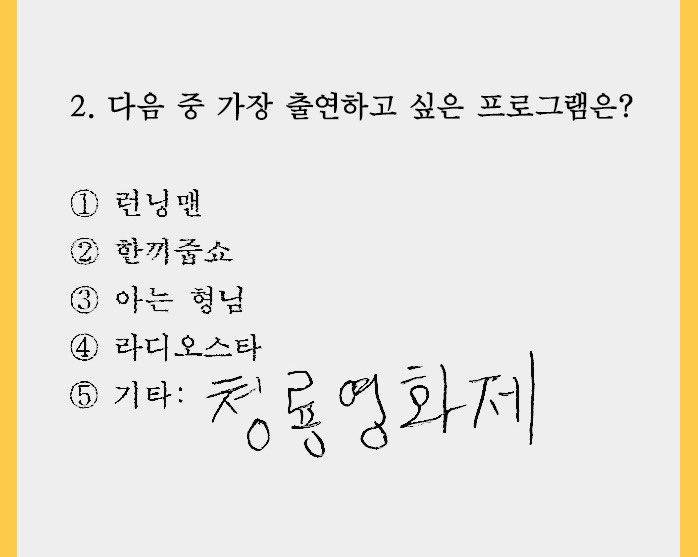 2. 다음 중 가장 출연하고 싶은 프로그램은?
① 런닝맨
② 한끼줍쇼
③ 아는 형님
④ 라디오스타
⑤ 기타: 청룡영화제